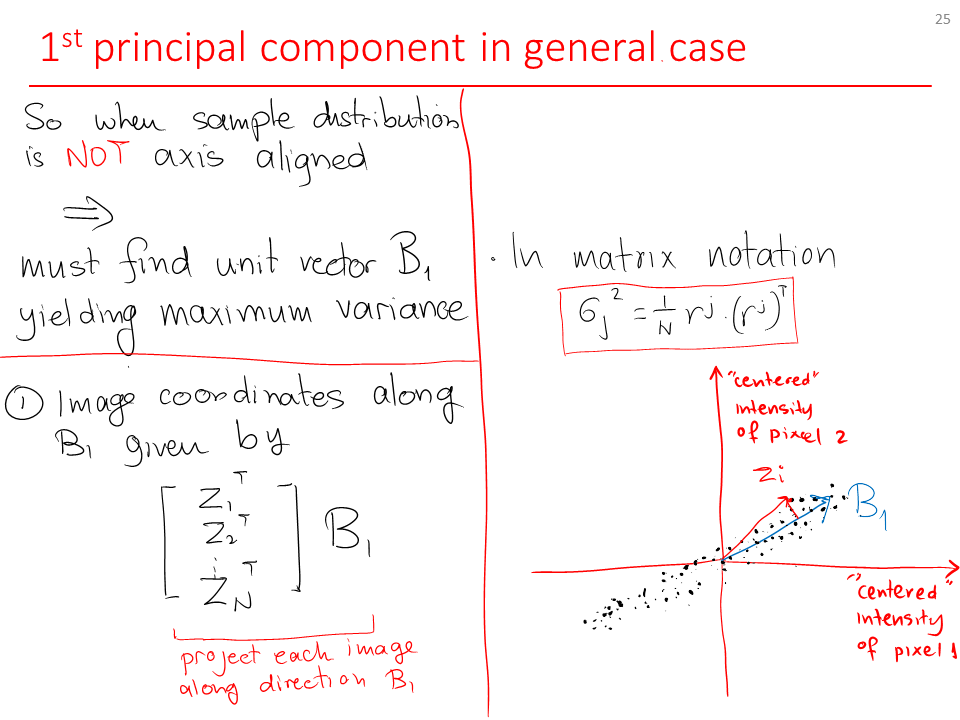 25
1st principal component in general case
So when sample distribution
is NOT axis aligned
⇒
must find unit vector B₁
yielding maximum variance
① Image coordinates along
B₁ given by
[ Z₁ᵀ
Z₂ᵀ
⋮
Z_Nᵀ ] B₁
project each image
along direction B₁
· In matrix notation
σⱼ² = 1/N rʲ · (rʲ)ᵀ
"centered"
intensity
of pixel 2
Zi
B₁
"centered"
intensity
of pixel 1